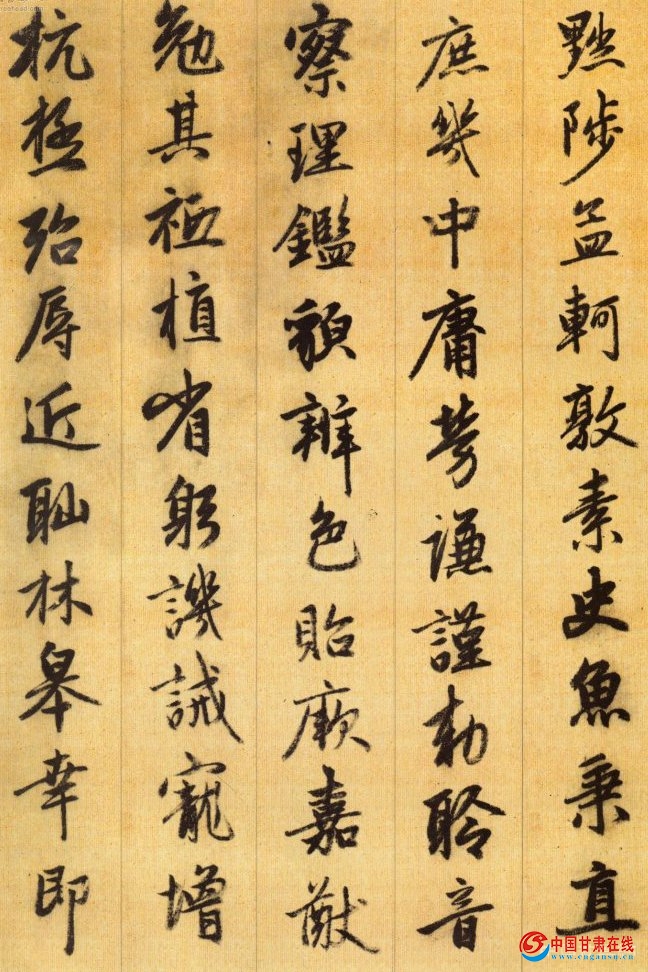 黜陟孟軻敦素史魚秉直
庶幾中庸勞謙謹勅聆音
察理鑑貌辨色貽厥嘉猷
勉其祗植省躬譏誡寵增
抗極殆辱近耻林皋幸即
中国甘肃在线
www.cngansu.cn